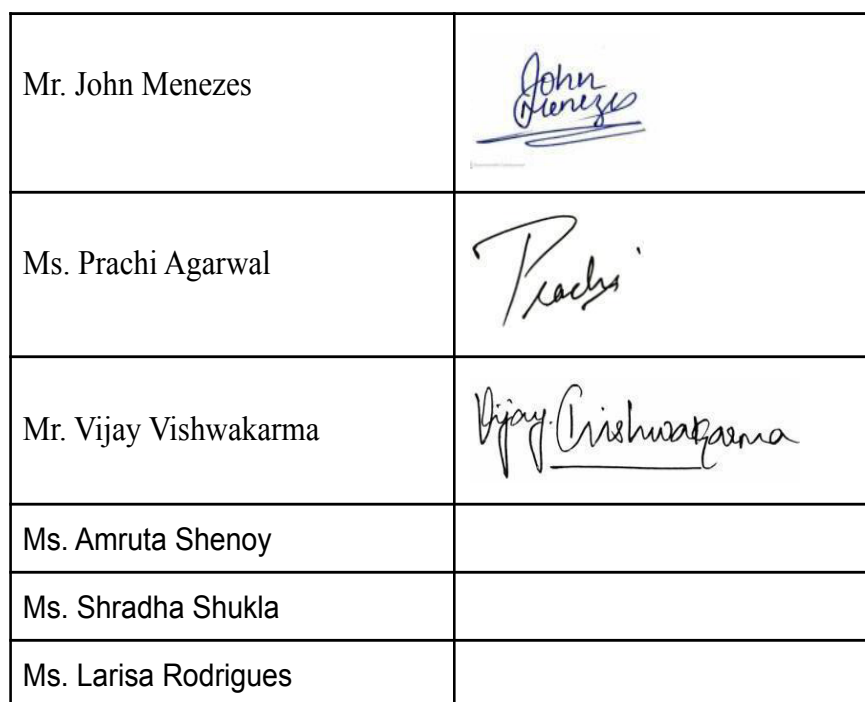 Mr. John Menezes
John
Menezes
Ms. Prachi Agarwal
Prachi
Mr. Vijay Vishwakarma
Vijay. Vishwakarma
Ms. Amruta Shenoy
Ms. Shradha Shukla
Ms. Larisa Rodrigues